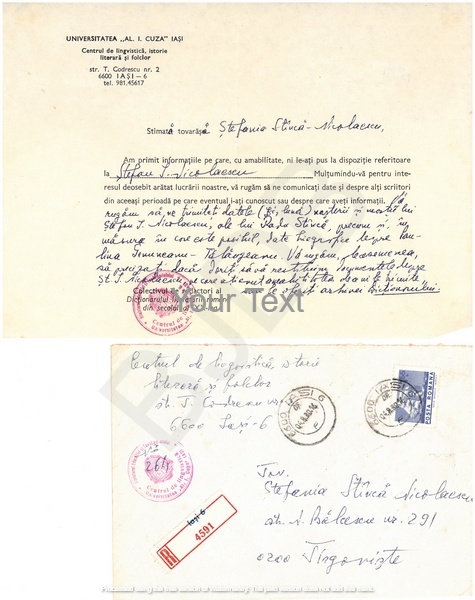 UNIVERSITATEA „AL. I. CUZA" IAȘI
Centrul de lingvistică, istorie
literară și folclor
str. T. Codrescu nr. 2
6600 IAȘI – 6
tel. 981.45617
Stimată tovarășă Ștefania Stîncă-Nicolaescu,
Am primit informațiile pe care, cu amabilitate, ni le-ați pus la dispoziție referitoare
la Ștefan T. Nicolaescu Mulțumindu-vă pentru inte-
resul deosebit arătat lucrării noastre, vă rugăm să ne comunicați date și despre alți scriitori
din aceeași perioadă pe care eventual i-ați cunoscut sau despre care aveți informații. Vă
rugăm să ne trimiteți datele (zi, lună) nașterii și morții lui
Ștefan T. Nicolaescu, ale lui Radu Stîncă, precum și, în
măsura în care este posibil, date biografice despre
Vă rugăm, deasemenea,
să precizați dacă doriți să vă restituim documentele despre
Șt. T. Nicolaescu
Colectivul de redactori al
Dicționarului literaturii române
din secolul al
arhivei Dicționarului.
Your Text
Centrul de lingvistică, istorie
literară și folclor
st. T. Codrescu nr. 2
6600 Iași-6
6600 IAȘI 6
POSTA ROMANA
264
Centrul de
Iași 6
R
4591
Tov.
Ștefania Stîncă Nicolaescu
str. N. Bălcescu nr. 291
0200 Tîrgoviște